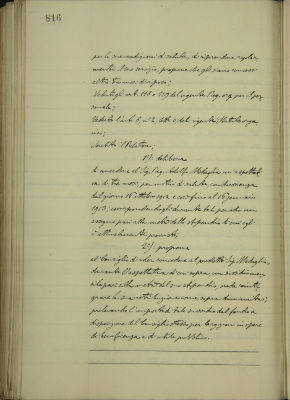 816
per le sue condizioni di salute, di riprendere regolar-
mente il suo servizio, propone che gli siano concessi
altri tre mesi di riposo;
Veduti gli art. 118 e 119 del vigente Reg. org. per il per-
sonale;
Veduto l'art. 8, n° 2, lett. c del vigente Statuto orga-
nico;
Sentito il Relatore;
1°) delibera
di concedere al Sig. Rag. Adolfo Medaglia un'aspettati-
va di tre mesi, per motivi di salute, con decorrenza
dal giorno 16 ottobre 1912 e cioè fino al 15 gennaio
1913, corrispondendogli durante tale periodo un
assegno pari alla metà dello stipendio di cui egli
è attualmente provvisto
2°) propone
al Consiglio di concedere al predetto Sig. Medaglia,
durante l'aspettativa di cui sopra, un sussidio men-
sile pari alla metà del suo stipendio,
prelevando l'importo di tale sussidio dal fondo a
disposizione del Consiglio stesso per erogarsi in opere
di beneficenza e di utilità pubblica.